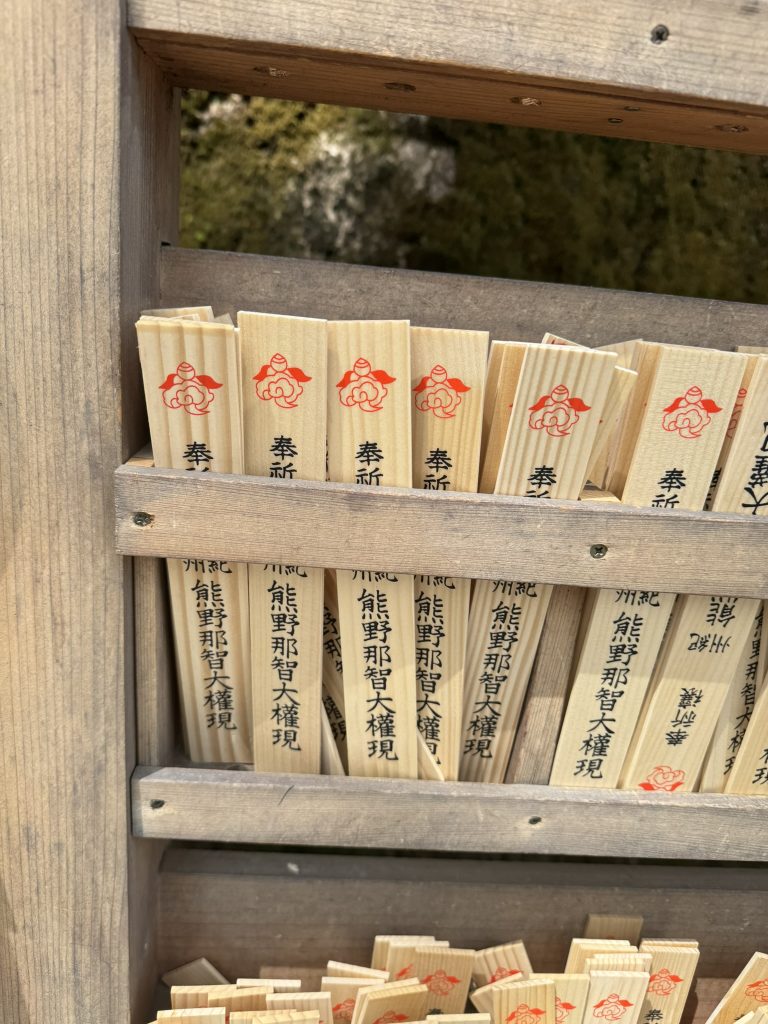 奉祈
紀州
熊野那智大權現
奉祈
紀州
熊野那智大權現
奉祈
紀州
熊野那智大權現
奉祈
紀州
熊野那智大權現
奉祈
紀州
熊野那智大權現
奉祈
紀州
熊野那智大權現
奉祈禳
紀州